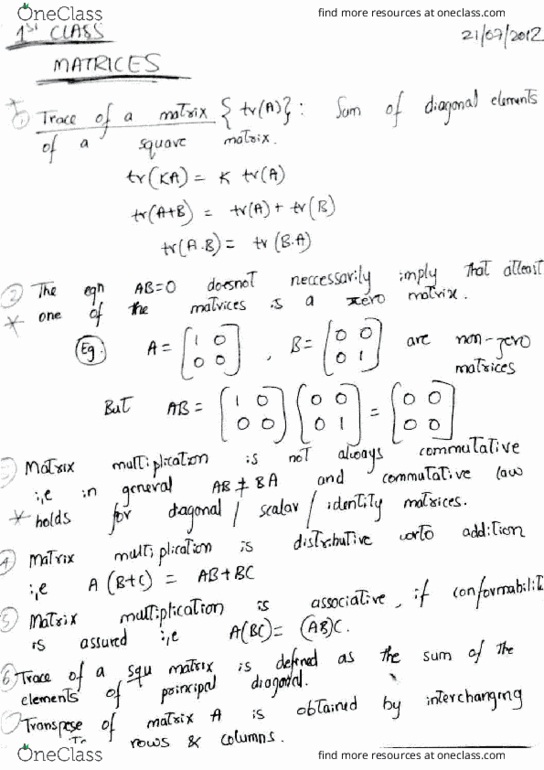 OneClass
find more resources at oneclass.com
1st CLASS
21/07/2012
MATRICES
* ① Trace of a matrix { tr(A)} : Sum of diagonal elements
of a square matrix.
tr(KA) = K tr(A)
tr(A+B) = tr(A) + tr(B)
tr(A.B) = tr(B.A)
② The eqn AB=0 doesnot neccessarily imply that atleast
* one of the matrices is a zero matrix.
Eg. A = [1 0 0 0] , B = [0 0 0 1] are non-zero
matrices
But AB = [1 0 0 0] [0 0 0 1] = [0 0 0 0]
③ Matrix multiplication is not always commutative
i,e in general AB ≠ BA and commutative law
* holds for diagonal / scalar / identity matrices.
④ Matrix multiplication is distributive wrto addition
i,e A (B+C) = AB+BC
⑤ Matrix multiplication is associative, if conformabilit
is assured i,e A(BC) = (AB)C.
⑥ Trace of a squ matrix is defined as the sum of the
elements of principal diagonal.
Transpose of matrix A is obtained by interchanging
rows & columns.
OneClass
find more resources at oneclass.com